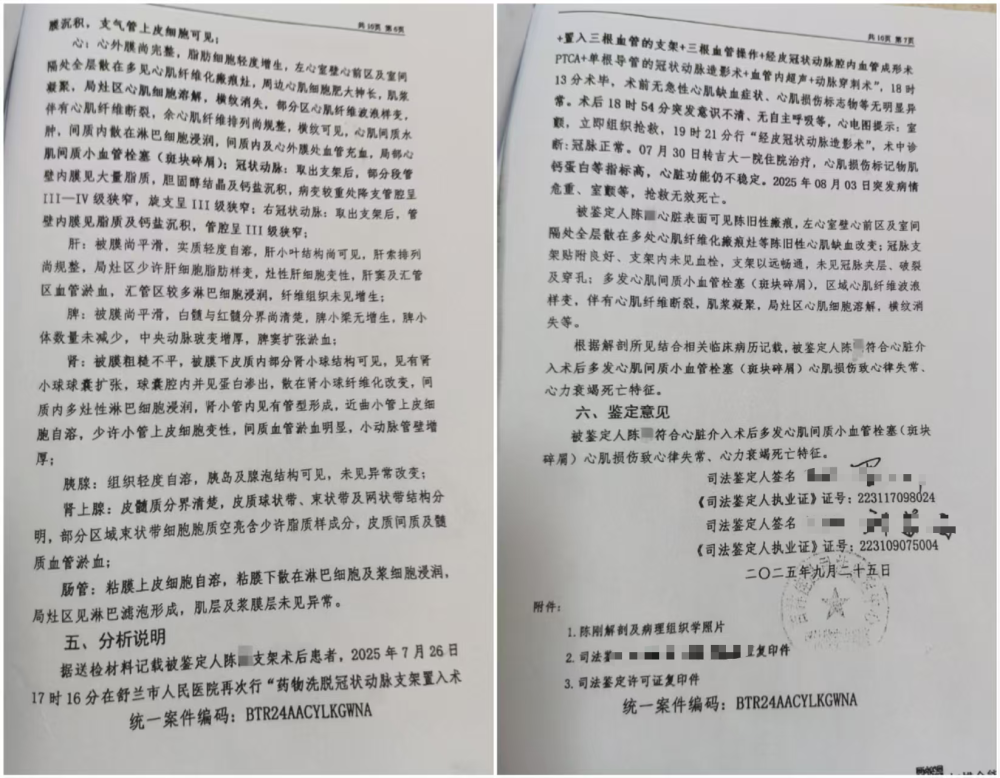 共16页 第6页
膜沉积，支气管上皮细胞可见；
心：心外膜尚完整，脂肪细胞轻度增生，左心室壁心前区及室间
隔处全层散在多见心肌纤维化瘢痕灶，周边心肌细胞肥大伸长，肌浆
凝聚，局灶区心肌细胞溶解，横纹消失，部分区心肌纤维波液样变，
伴有心肌纤维断裂，余心肌纤维排列尚规整，横纹可见，心肌间质水
肿，间质内散在淋巴细胞浸润，间质内及心外膜处血管充血，局部心
肌间质小血管栓塞（斑块碎屑）；冠状动脉：取出支架后，部分段管
壁内膜见大量脂质，胆固醇结晶及钙盐沉积，病变较重处降支管腔呈
III—IV级狭窄，旋支呈III级狭窄；右冠状动脉：取出支架后，管
壁内膜见脂质及钙盐沉积，管腔呈III级狭窄；
肝：被膜尚平滑，实质轻度自溶，肝小叶结构尚可见，肝索排列
尚规整，局灶区少许肝细胞脂肪样变，灶性肝细胞变性，肝窦及汇管
区血管淤血，汇管区较多淋巴细胞浸润，纤维组织未见增生；
脾：被膜尚平滑，白髓与红髓分界尚清楚，脾小梁无增生，脾小
体数量未减少，中央动脉玻变增厚，脾窦扩张淤血；
肾：被膜粗糙不平，被膜下皮质内部分肾小球结构可见，见有肾
小球球囊扩张，球囊腔内并见蛋白渗出，散在肾小球纤维化改变，间
质内多灶性淋巴细胞浸润，肾小管内见有管型形成，近曲小管上皮细
胞自溶，少许小管上皮细胞变性，间质血管淤血明显，小动脉管壁增
厚；
胰腺：组织轻度自溶，胰岛及腺泡结构可见，未见异常改变；
肾上腺：皮髓质分界清楚，皮质球状带、束状带及网状带结构分
明，部分区域束状带细胞胞质空亮含少许脂质样成分，皮质间质及髓
质血管淤血；
肠管：粘膜上皮细胞自溶，粘膜下散在淋巴细胞及浆细胞浸润，
局灶区见淋巴滤泡形成，肌层及浆膜层未见异常。
五、分析说明
据送检材料记载被鉴定人陈 支架术后患者，2025年7月26日
17时16分在舒兰市人民医院再次行“药物洗脱冠状动脉支架置入术
统一案件编码：BTR24AACYLKGWNA
共16页 第7页
+置入三根血管的支架+三根血管操作+经皮冠状动脉腔内血管成形术
PTCA+单根导管的冠状动脉造影术+血管内超声+动脉穿刺术”，18时
13分术毕，术前无急性心肌缺血症状、心肌损伤标志物等无明显异
常。术后18时54分突发意识不清、无自主呼吸等，心电图提示：室
颤，立即组织抢救，19时21分行“经皮冠状动脉造影术”，术中诊
断：冠脉正常。07月30日转吉大一院住院治疗，心肌损伤标记物肌
钙蛋白等指标高，心脏功能仍不稳定。2025年08月03日突发病情
危重、室颤等，抢救无效死亡。
被鉴定人陈 心脏表面可见陈旧性瘢痕，左心室壁心前区及室间
隔处全层散在多处心肌纤维化瘢痕灶等陈旧性心肌缺血改变；冠脉支
架贴附良好、支架内未见血栓，支架以远畅通，未见冠脉夹层、破裂
及穿孔；多发心肌间质小血管栓塞（斑块碎屑），区域心肌纤维波液
样变，伴有心肌纤维断裂，肌浆凝聚，局灶区心肌细胞溶解，横纹消
失等。
根据解剖所见结合相关临床病历记载，被鉴定人陈 符合心脏介
入术后多发心肌间质小血管栓塞（斑块碎屑）心肌损伤致心律失常、
心力衰竭死亡特征。
六、鉴定意见
被鉴定人陈 符合心脏介入术后多发心肌间质小血管栓塞（斑块
碎屑）心肌损伤致心律失常、心力衰竭死亡特征。
司法鉴定人签名
《司法鉴定人执业证》证号：223117098024
司法鉴定人签名
《司法鉴定人执业证》证号：223109075004
二〇二五年九月二十五日
附件：
1.陈刚解剖及病理组织学照片
2.司法 复印件
3.司法鉴定许可证复印件
统一案件编码：BTR24AACYLKGWNA